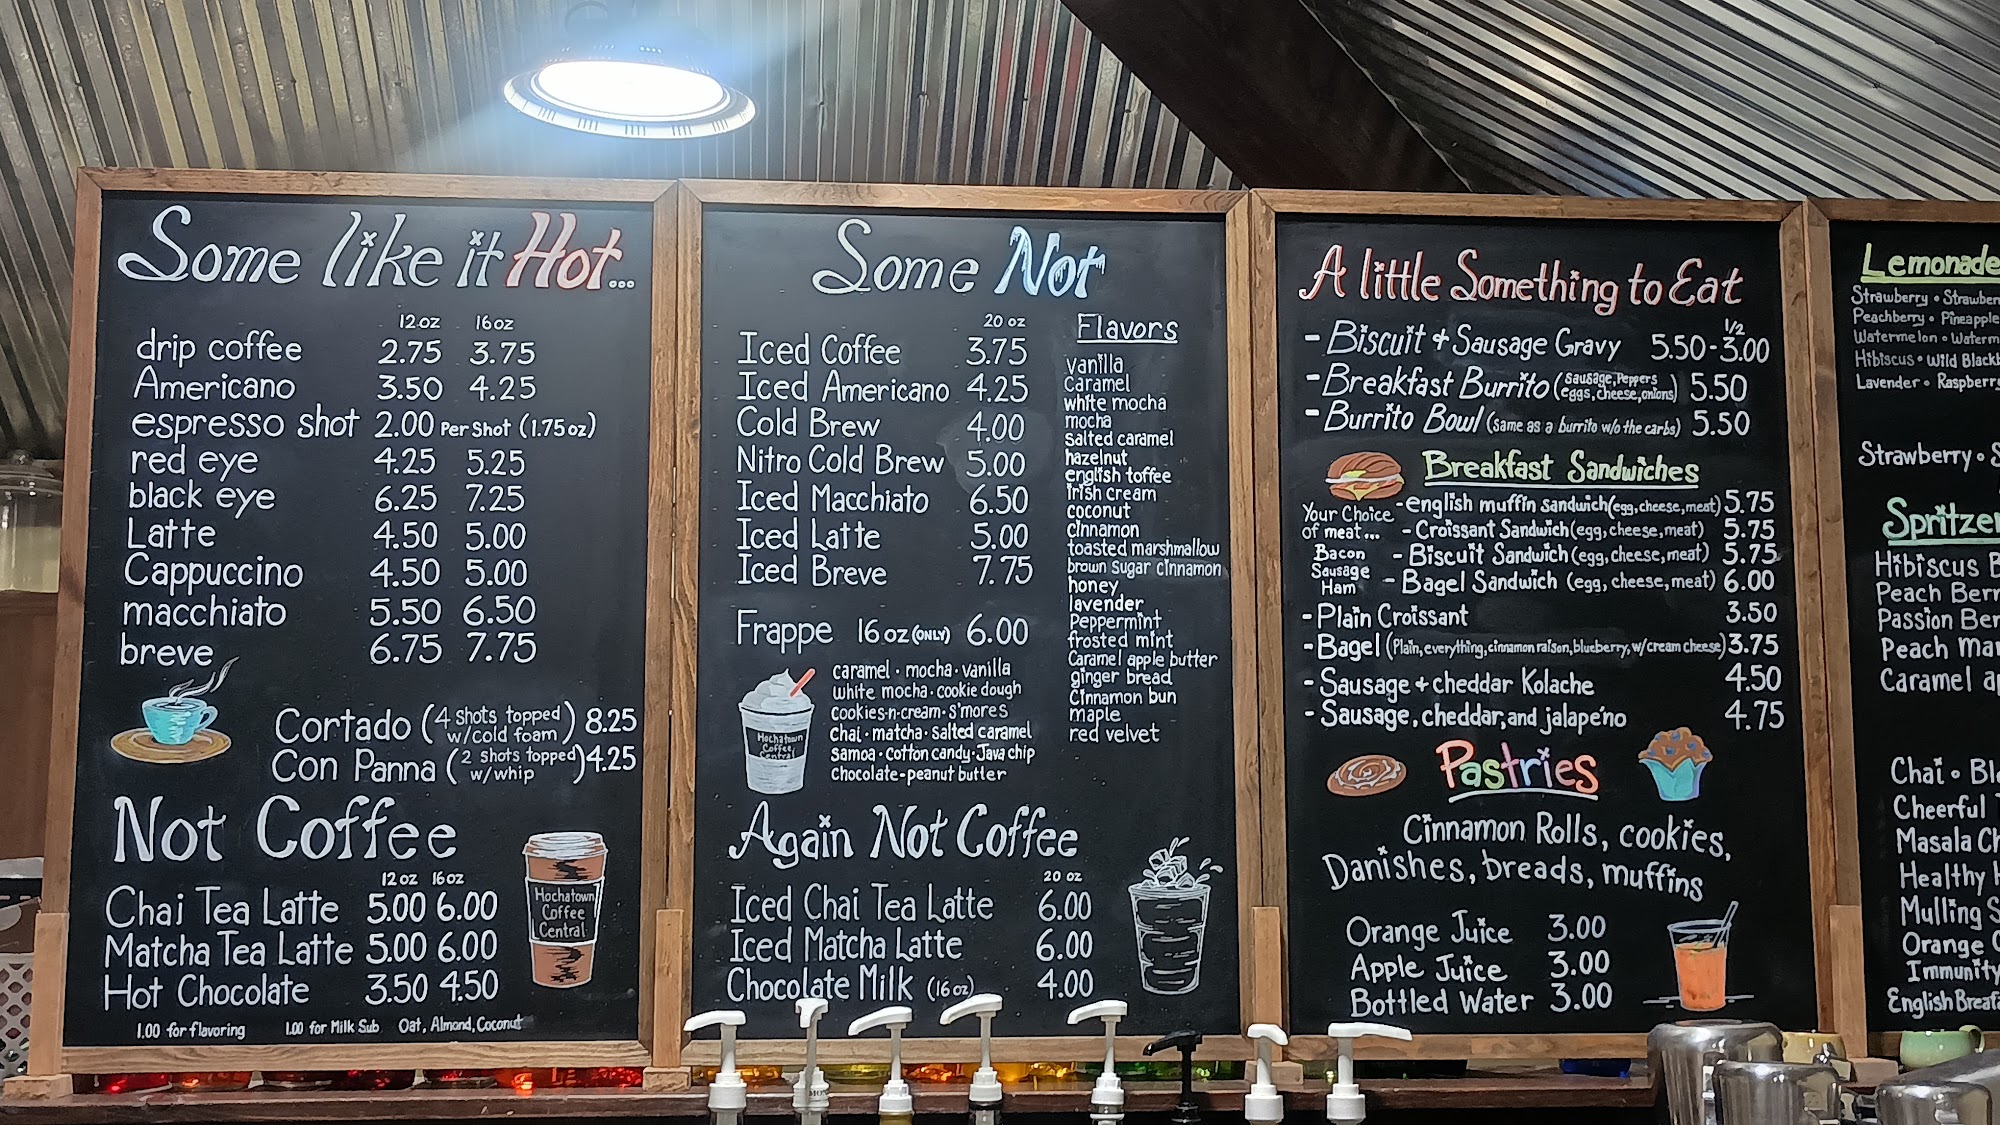 Some like it Hot...
12oz 16oz
drip coffee 2.75 3.75
Americano 3.50 4.25
espresso shot 2.00 Per Shot (1.75oz)
red eye 4.25 5.25
black eye 6.25 7.25
Latte 4.50 5.00
Cappuccino 4.50 5.00
macchiato 5.50 6.50
breve 6.75 7.75
Cortado (4 shots topped w/cold foam) 8.25
Con Panna (2 shots topped w/whip) 4.25
Not Coffee
12oz 16oz
Chai Tea Latte 5.00 6.00
Matcha Tea Latte 5.00 6.00
Hot Chocolate 3.50 4.50
1.00 for flavoring 1.00 for Milk Sub Oat, Almond, Coconut
Hochatown
Coffee
Central
Some Not
20 oz
Iced Coffee 3.75
Iced Americano 4.25
Cold Brew 4.00
Nitro Cold Brew 5.00
Iced Macchiato 6.50
Iced Latte 5.00
Iced Breve 7.75
Frappe 16 oz (ONLY) 6.00
caramel · mocha · vanilla
white mocha · cookie dough
cookies-n-cream · s'mores
chai · matcha · salted caramel
samoa · cotton candy · Java chip
chocolate-peanut butter
Hochatown
Coffee
Central
Flavors
vanilla
Caramel
white mocha
mocha
salted caramel
hazelnut
english toffee
irish cream
coconut
cinnamon
toasted marshmallow
brown sugar cinnamon
honey
lavender
Peppermint
frosted mint
Caramel apple butter
ginger bread
Cinnamon bun
maple
red velvet
Again Not Coffee
20 oz
Iced Chai Tea Latte 6.00
Iced Matcha Latte 6.00
Chocolate Milk (16 oz) 4.00
A little Something to Eat
1/2
- Biscuit + Sausage Gravy 5.50 - 3.00
- Breakfast Burrito (sausage, Peppers eggs, cheese, onions) 5.50
- Burrito Bowl (same as a burrito w/o the carbs) 5.50
Breakfast Sandwiches
Your Choice
of meat...
Bacon
Sausage
Ham
- english muffin sandwich (egg, cheese, meat) 5.75
- Croissant Sandwich (egg, cheese, meat) 5.75
- Biscuit Sandwich (egg, cheese, meat) 5.75
- Bagel Sandwich (egg, cheese, meat) 6.00
- Plain Croissant 3.50
- Bagel (Plain, everything, cinnamon raison, blueberry, w/cream cheese) 3.75
- Sausage + cheddar Kolache 4.50
- Sausage, cheddar, and jalape'no 4.75
Pastries
Cinnamon Rolls, cookies,
Danishes, breads, muffins
Orange Juice 3.00
Apple Juice 3.00
Bottled Water 3.00
Lemonade
Strawberry •
Peachberry • Pineapple
Watermelon •
Hibiscus • Wild
Lavender • Raspberry
Strawberry •
Hibiscus
Peach
Passion
Peach
Caramel
Chai •
Cheerful
Masala
Healthy
Mulling
Orange
Immunity
English